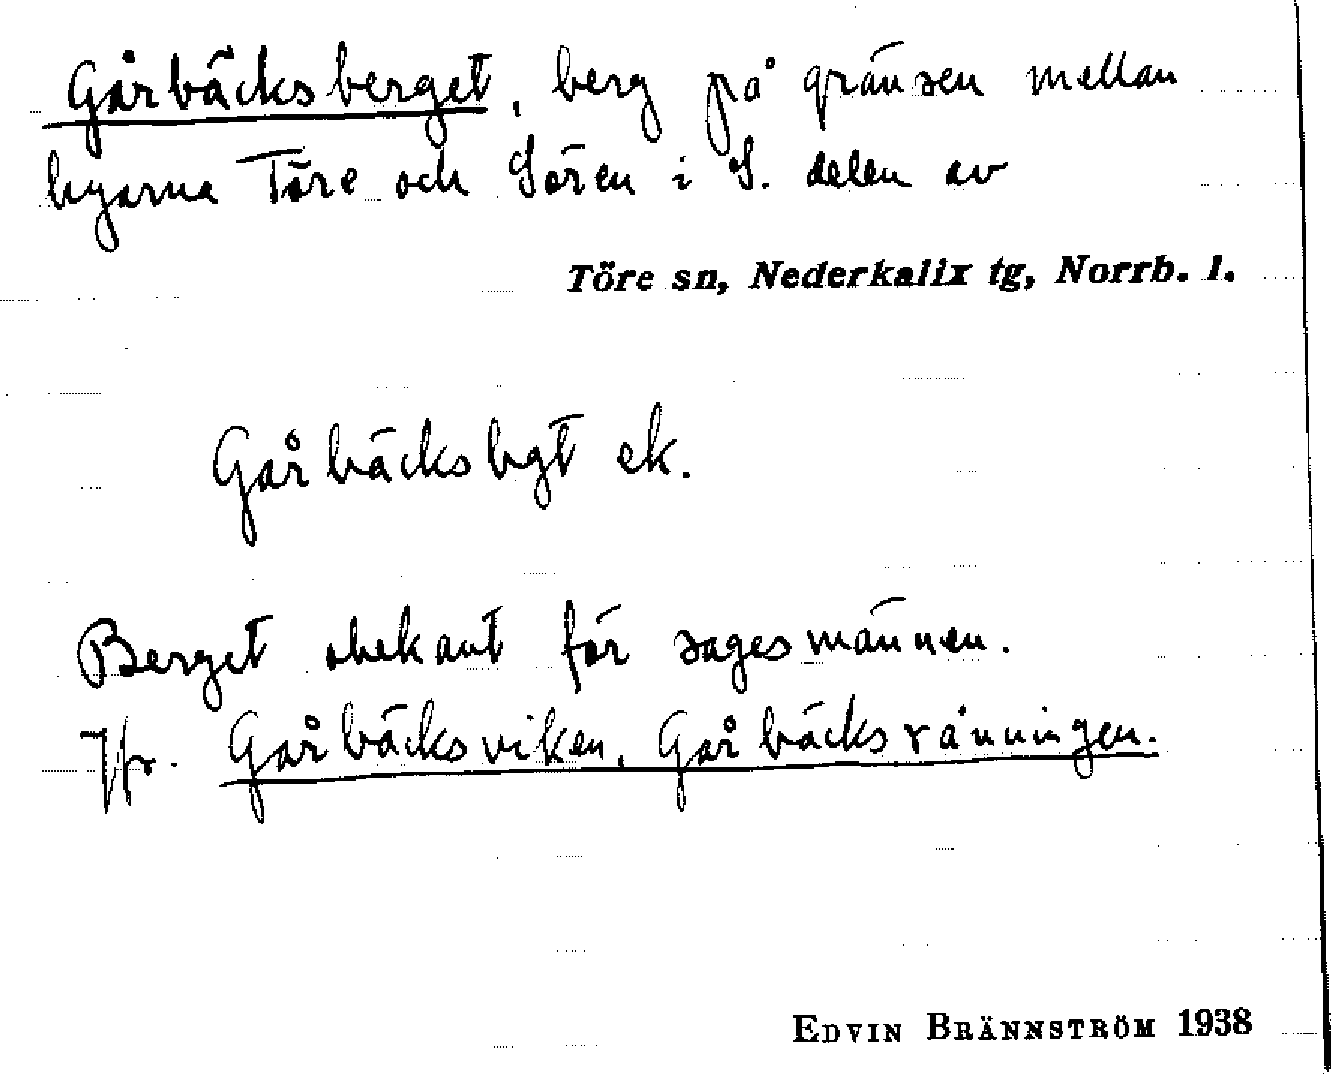 Gårbäcksberget, berg på gränsen mellan
byarna Töre och Sören i S. delen av
Töre sn, Nederkalix tg, Norrb. l.
Gårbäcksbgt ek.
Berget obekant för sagesmännen.
Jfr. Gårbäcksviken, Gårbäcksrånningen.
EDVIN BRÄNNSTRÖM 1938